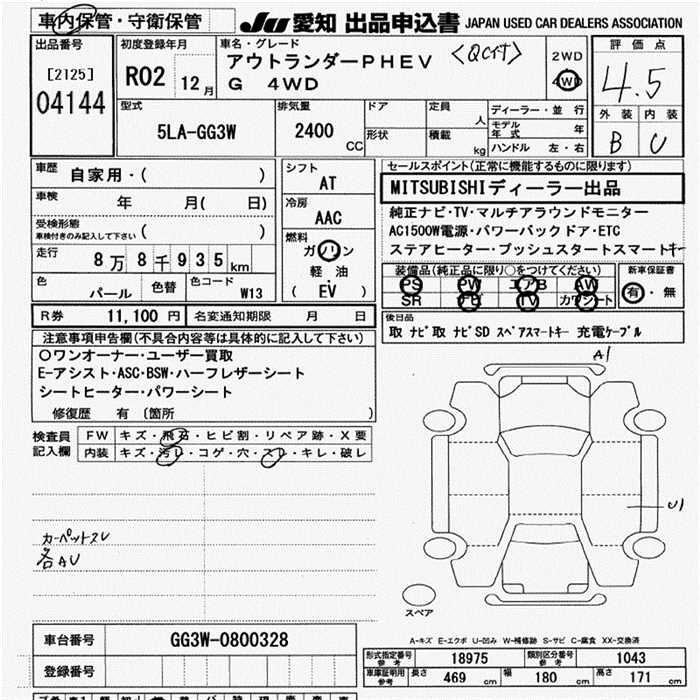 車内保管・守衛保管
JU 愛知 出品申込書 JAPAN USED CAR DEALERS ASSOCIATION
出品番号
[2125]
04144
初度登録年月
R02 12月
車名・グレード
アウトランダーPHEV <QCｹｹ>
G 4WD
2WD
4WD
評価点
4.5
外装 内装
B C
型式
5LA-GG3W
排気量
2400 CC
ドア
形状
定員 人
積載 kg
ディーラー・並行
モデル年式 年
ハンドル 左・右
車歴 自家用・( )
車検 年 月( 日)
受検形態
車検付きのみ記入して下さい ( )
走行 8万8千935km
色 パール 色替 色コード W13
シフト
AT
冷房
AAC
燃料
ガソリン
軽油
( EV )
セールスポイント(正常に機能するものに限ります)
MITSUBISHIディーラー出品
純正ナビ・TV・マルチアラウンドモニター
AC1500W電源・パワーバックドア・ETC
ステアヒーター・プッシュスタートスマートキー
装備品(純正品に限り○をつけてください)
PS PW エアB AW
SR ナビ TV カワシート
新車保証書
有・無
R券 11,100円 名変通知期限 月 日
後日品
取 ナビ取 ナビSD スペアスマートキー 充電ケーブル
注意事項申告欄(不具合内容等は具体的に記入して下さい)
○ワンオーナー・ユーザー買取
E-アシスト・ASC・BSW・ハーフレザーシート
シートヒーター・パワーシート
修復歴 有 (箇所 )
検査員記入欄
FW キズ・飛石・ヒビ割・リペア跡・X要
内装 キズ・汚レ・コゲ・穴・スレ・キレ・破レ
カーペットスレ
各AU
A1
U1
スペア
A-キズ E-エクボ U-凹み W-補修跡 S-サビ C-腐食 XX-交換済
車台番号 GG3W-0800328
登録番号
形式指定番号 参考 18975 類別区分番号 参考 1043
車庫証明用 参考 長さ 469 cm 幅 180 cm 高さ 171 cm